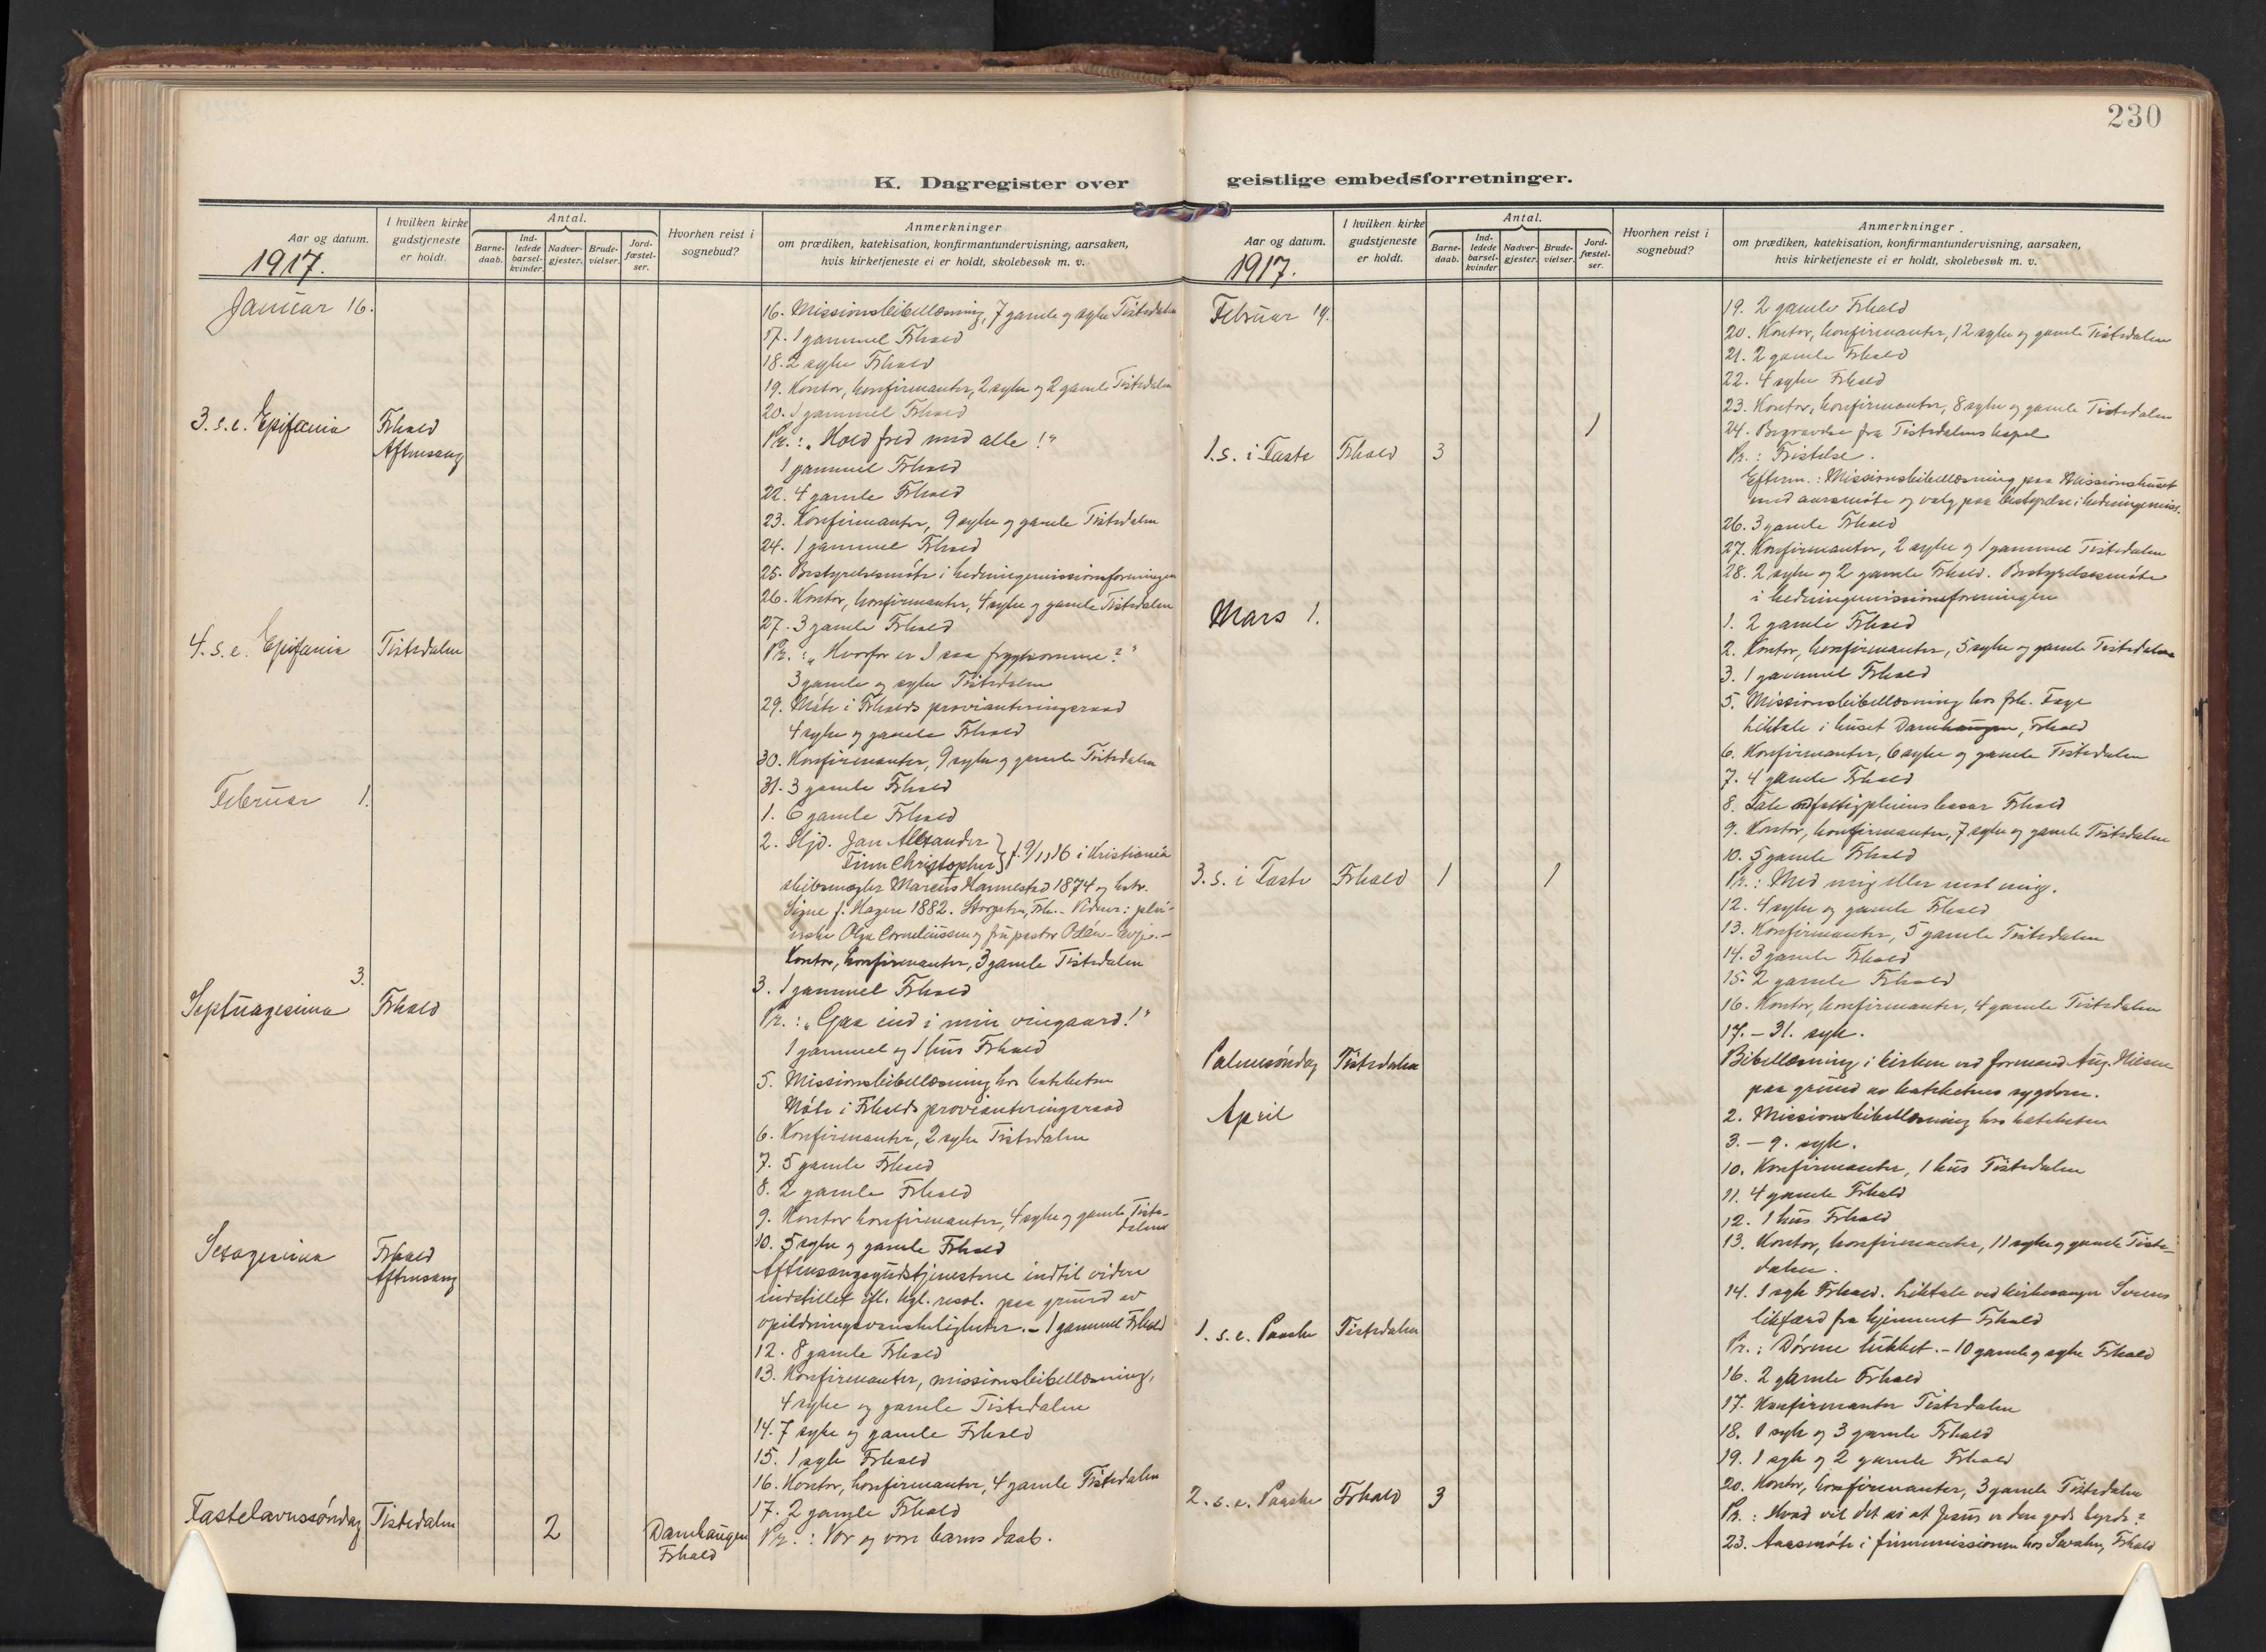 230
K. Dagregister over
Aar og datum.
1917.
I hvilken kirke gudstjeneste er holdt.
Antal.
Barnedaab.
Indledede barselkvinder.
Nadvergjester.
Brudevielser.
Jordfæstelser.
Hvorhen reist i sognebud?
Anmerkninger
om prædiken, katekisation, konfirmantundervisning, aarsaken,
hvis kirketjeneste ei er holdt, skolebesøk m. v.
Januar 16.
16. Missionsbibellæsning, 7 gamle og syke Tistedalen
17. 1 gammel Frhald
18. 2 syke Frhald
19. Kontor, konfirmanter, 2 syke og 2 gamle Tistedalen
20. 1 gammel Frhald
3. s. e. Epifania Frhald Pr.: „Hold fred med alle!"
Aftensang
1 gammel Frhald
22. 4 gamle Frhald
23. Konfirmanter, 9 syke og gamle Tistedalen
24. 1 gammel Frhald
25. Bestyrelsesmöte i hedningemissionsforeningen
26. Kontor, konfirmanter, 4 syke og gamle Tistedalen
27. 3 gamle Frhald
4. s. e. Epifania Tistedalen Pr.: „Hvorfor er I saa frygtsomme?"
3 gamle og syke Tistedalen
29. Möte i Frhalds provianteringsraad
4 syke og gamle Frhald
30. Konfirmanter, 9 syke og gamle Tistedalen
31. 3 gamle Frhald
Februar 1.
1. 6 gamle Frhald
2. Hjd. Jan Alexander
Finn Christopher } f. 9/11 16 i Kristiania
skibsmægler Marcus Hannestad 1874 og hstr.
Signe f. Hagen 1882. Storgaten, Frh. - Vidner: pleierske Olga Corneliussen og fru pastor Odén-
Kontor, konfirmanter, 3 gamle Tistedalen
3.
3. 1 gammel Frhald
Septuagesima Frhald Pr.: „Gaa ind i min vingaard!"
1 gammel og 1 hus Frhald
5. Missionsbibellæsning hos kateketen
Möte i Frhalds provianteringsraad
6. Konfirmanter, 2 syke Tistedalen
7. 5 gamle Frhald
8. 2 gamle Frhald
9. Kontor konfirmanter, 4 syke og gamle Tistedalen
10. 5 syke og gamle Frhald
Sexagesima Frhald
Aftensang
Aftensangsgudstjenesterne indtil videre
indstillet ifl. kgl. resol. paa grund av
opildningsvanskeligheter. - 1 gammel Frhald
12. 8 gamle Frhald
13. Konfirmanter, missionsbibellæsning,
4 syke og gamle Tistedalen
14. 7 syke og gamle Frhald
15. 1 syk Frhald
16. Kontor, konfirmanter, 4 gamle Tistedalen
17. 2 gamle Frhald
Fastelavnssöndag Tistedalen 2 Damhaugen Frhald Pr.: Vor og vore barns daab.
geistlige embedsforretninger.
Aar og datum.
1917.
I hvilken kirke gudstjeneste er holdt.
Antal.
Barnedaab.
Indledede barselkvinder
Nadvergjester.
Brudevielser.
Jordfæstelser.
Hvorhen reist i sognebud?
Anmerkninger.
om prædiken, katekisation, konfirmantundervisning, aarsaken,
hvis kirketjeneste ei er holdt, skolebesøk m. v.
Februar 19.
19. 2 gamle Frhald
20. Kontor, konfirmanter, 12 syke og gamle Tistedalen
21. 2 gamle Frhald
22. 4 syke Frhald
23. Kontor, konfirmanter, 8 syke og gamle Tistedalen
1
24. Begravelse fra Tistedalens kapel
1. s. i Faste Frhald 3 Pr.: Fristelse.
Efterm.: Missionsbibellæsning paa Missionshuset
med aarsmöte og valg paa bestyrelse i hedningemiss.
26. 3 gamle Frhald
27. Konfirmanter, 2 syke og 1 gammel Tistedalen
28. 2 syke og 2 gamle Frhald. Bestyrelsesmöte
i hedningemissionsforeningen
Mars 1.
1. 2 gamle Frhald
2. Kontor, konfirmanter, 5 syke og gamle Tistedalen
3. 1 gammel Frhald
5. Missionsbibellæsning hos frk. Faye
Liktale i huset Damhaugen, Frhald
6. Konfirmanter, 6 syke og gamle Tistedalen
7. 4 gamle Frhald
8. Tale ved fattigpleiens basar Frhald
9. Kontor, konfirmanter, 7 syke og gamle Tistedalen
10. 5 gamle Frhald
3. s. i Faste Frhald 1 1 Pr.: Med mig eller mot mig.
12. 4 syke og gamle Frhald
13. Konfirmanter, 5 gamle Tistedalen
14. 3 gamle Frhald
15. 2 gamle Frhald
16. Kontor, konfirmanter, 4 gamle Tistedalen
17. - 31. syk.
Palmesöndag Tistedalen Bibellæsning i kirken ved formand Aug. Nilsen
paa grund av kateketens sygdom.
April
2. Missionsbibellæsning hos kateketen
3. - 9. syk.
10. Konfirmanter, 1 hus Tistedalen
11. 4 gamle Frhald
12. 1 hus Frhald
13. Kontor, konfirmanter, 11 syke og gamle Tistedalen.
14. 1 syk Frhald. Liktale ved kirkesanger Svens
likfærd fra hjemmet Frhald
1. s. e. Paaske Tistedalen Pr.: Dörene lukket. - 10 gamle og syke Frhald
16. 2 gamle Frhald
17. Konfirmanter Tistedalen
18. 1 syk og 3 gamle Frhald
19. 1 syk og 2 gamle Frhald
20. Kontor, konfirmanter, 3 gamle Tistedalen
2. s. e. Paaske Frhald 3 Pr.: Hvad vil det si at Jesus er den gode hyrde?
23. Aarsmöte i finnemissionen hos Swahn, Frhald